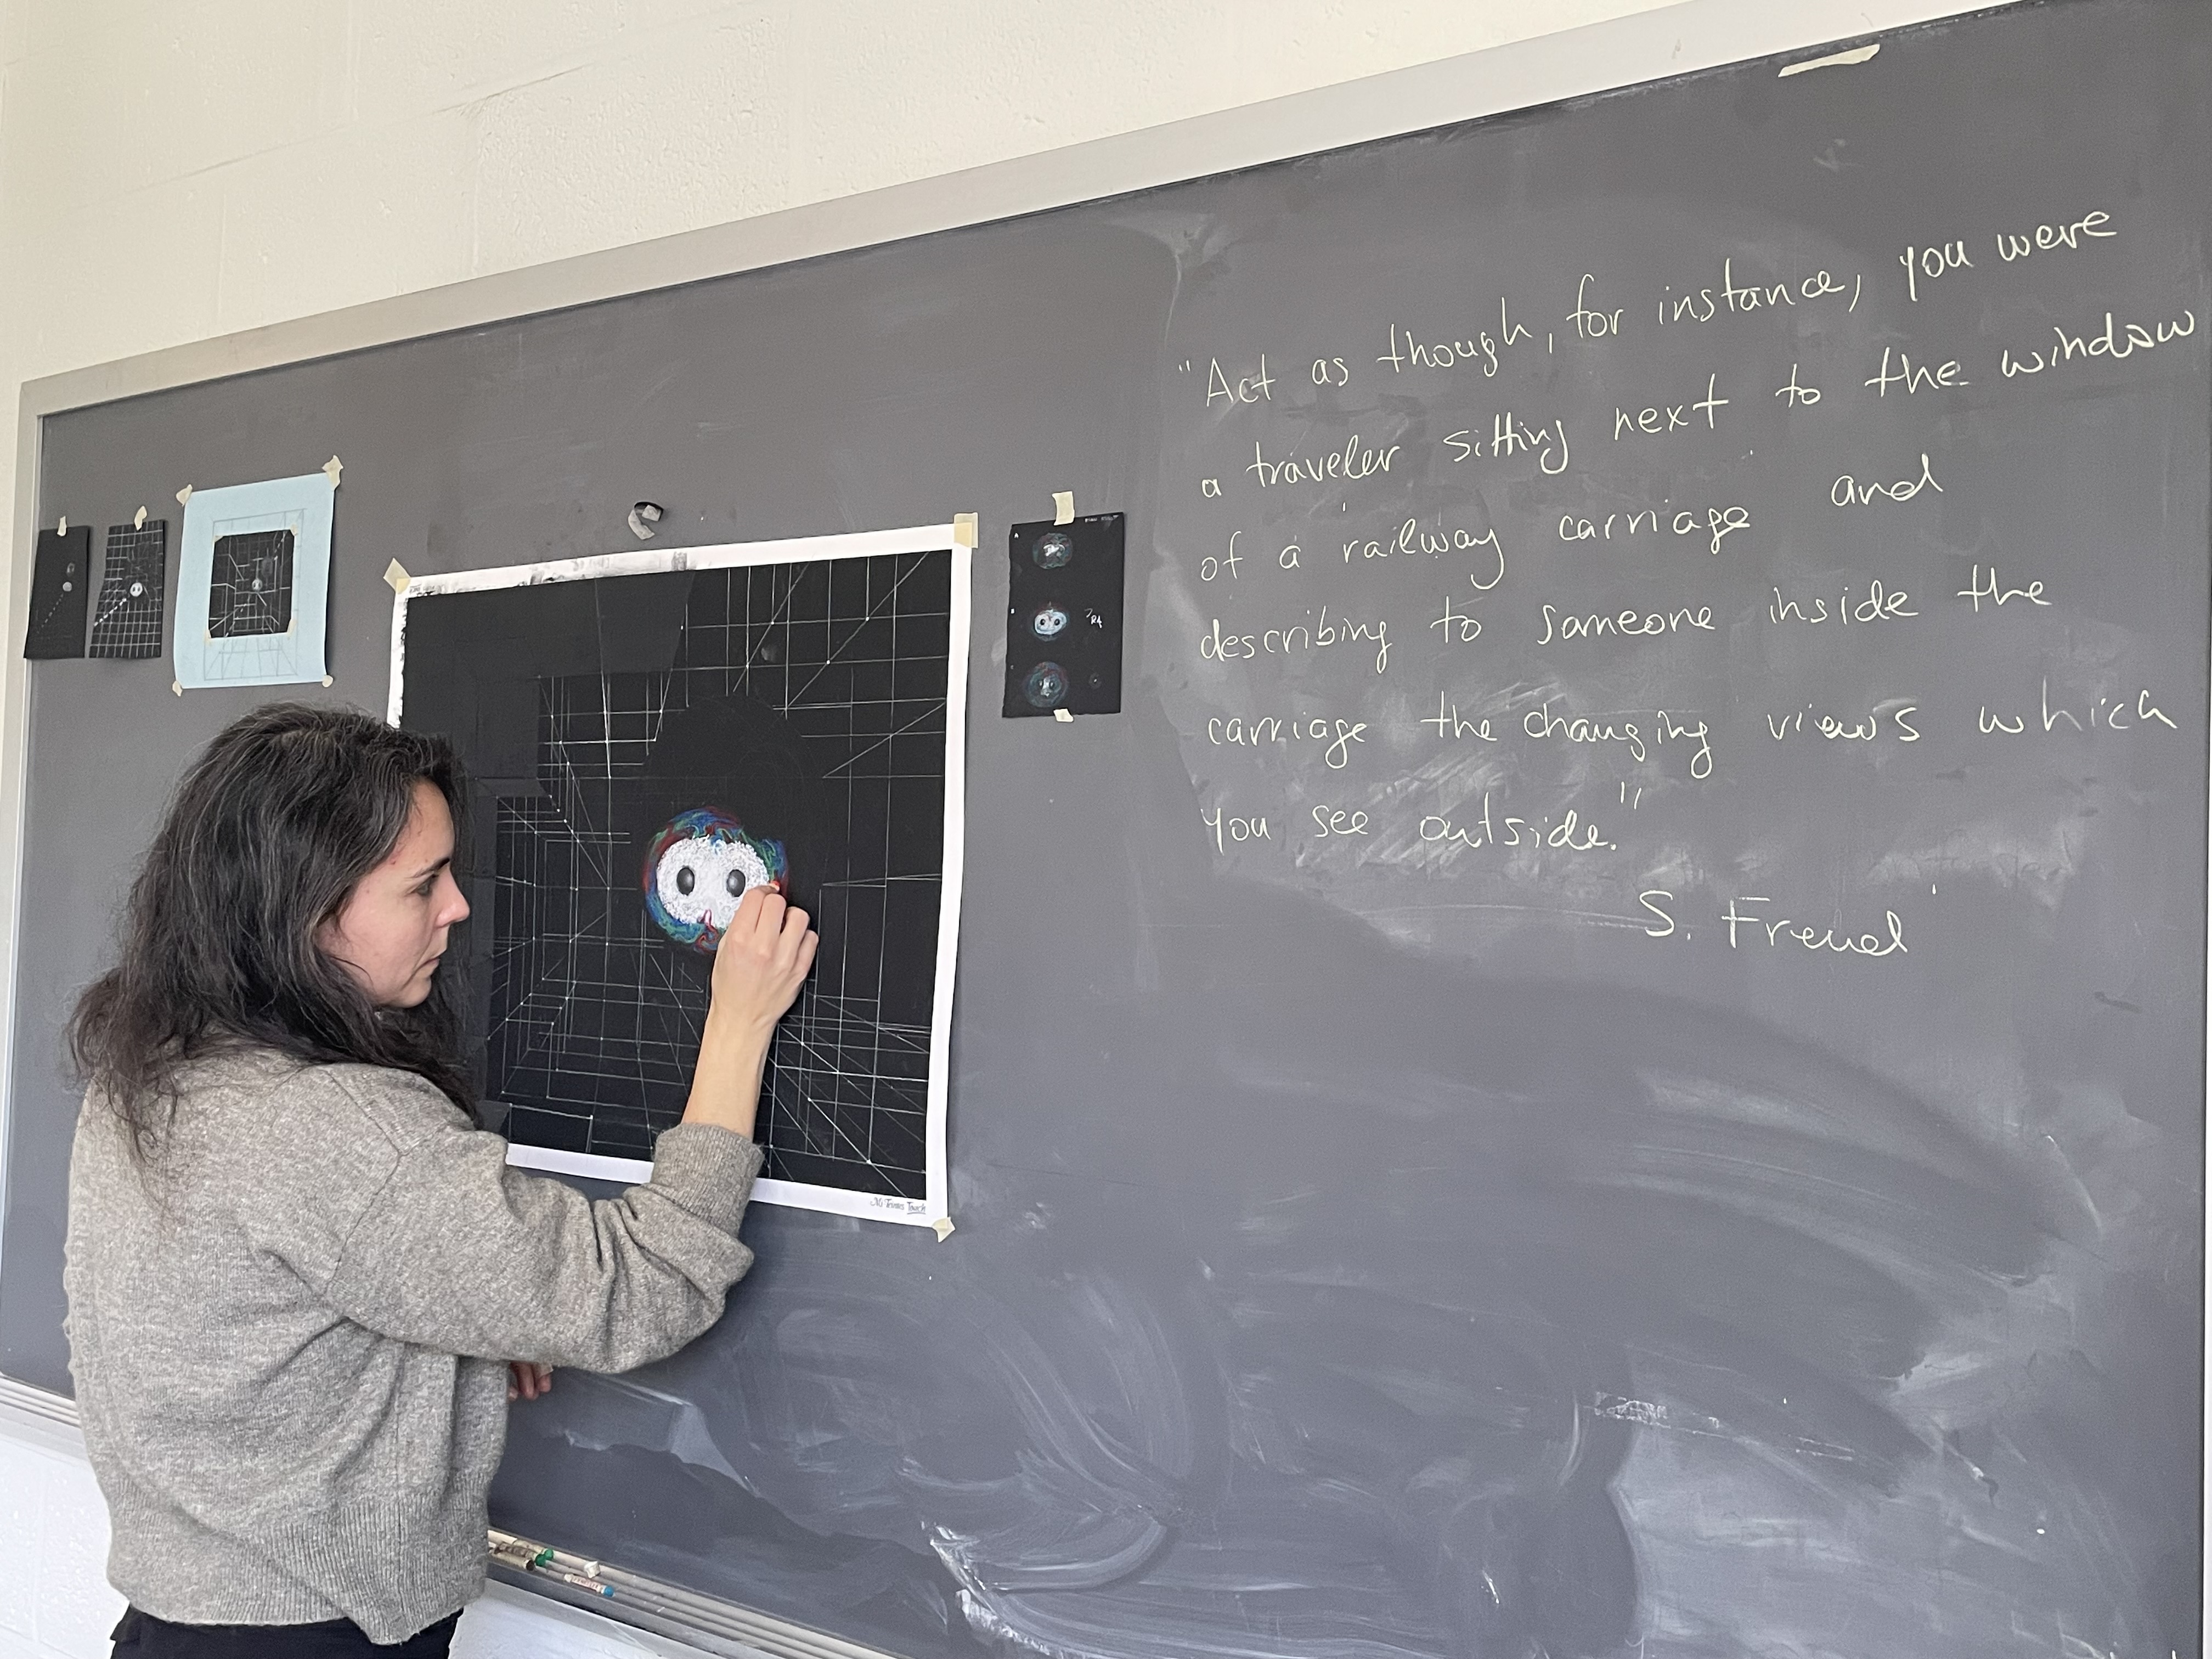 "Act as though, for instance, you were
a traveler sitting next to the window
of a railway carriage and
describing to someone inside the
carriage the changing views which
you see outside."
S. Freud